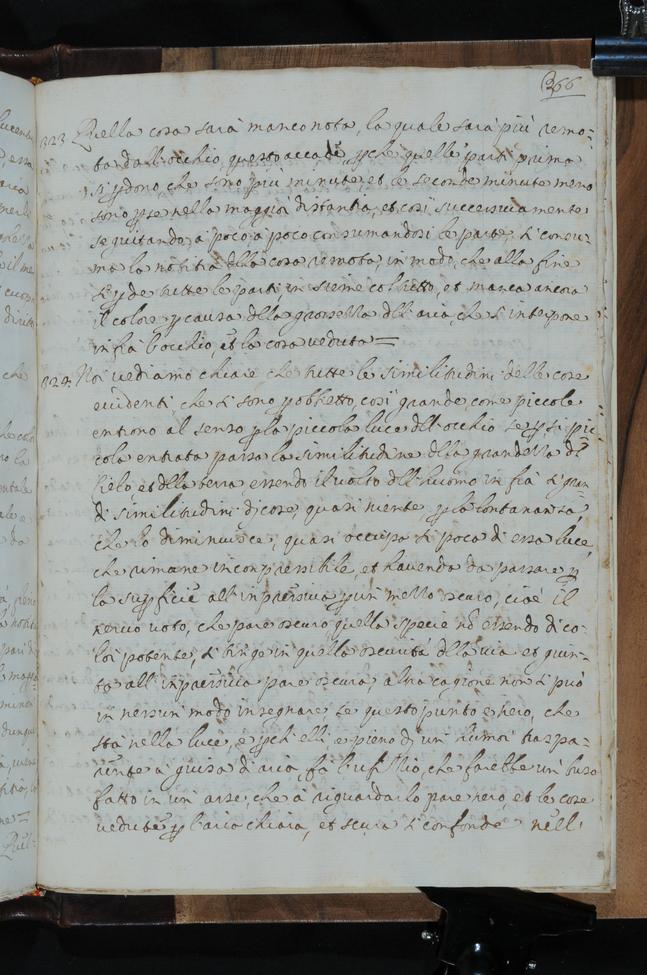 366
323 Quella cosa sarà manco nota, la quale sarà più remo-
ta dall'occhio, questo accade, pchè quelle parti prima
si pdono, che sono più minute, et le seconde minute meno
sono pse nella maggior distantia, et così successivamente
seguitando, à poco à poco consumandosi le parte, si consu-
ma la notitia della cosa remota, in modo, che alla fine
si pde tutte le parti, insieme col tutto, et manca ancora
il colore p causa della grossezza dell'aria, che s'interpone
infra l'occhio, et la cosa veduta=
324. Noi vediamo chiare che tutte le similitudini delle cose
evidenti che ci sono p obbietto, così grande, come piccole
entrono al senso p la piccola luce dell'occhio se p si pic-
cola entrata passa la similitudine della grandezza del
Cielo et della terra essendo il volto dell'huomo in fra si gran
di similitudini di cose, quasi niente, p la lontananza,
che lo diminuisce, quasi occupa si poca di essa luce,
che rimane incomprensibile, et havendo da passare p
la supficie all'inpressiva p un mezzo oscuro, cioè il
nervo voto, che pare oscuro quella spezie nō essendo di co-
lor potente, si tinge in quella oscurità della via et giun-
ta all'inpressiva pare oscura, altra cagione non si può
in nessun modo insegnare, se questo punto è nero, che
stà nella luce, e pchè elli è pieno di un humor traspa-
rente à guisa di aria, fà l'ufitio, che farebbe un buso
fatto in un asse, che à riguardarlo pare nero et le cose
vedute p l'aria chiara, et scura si confonde nell'